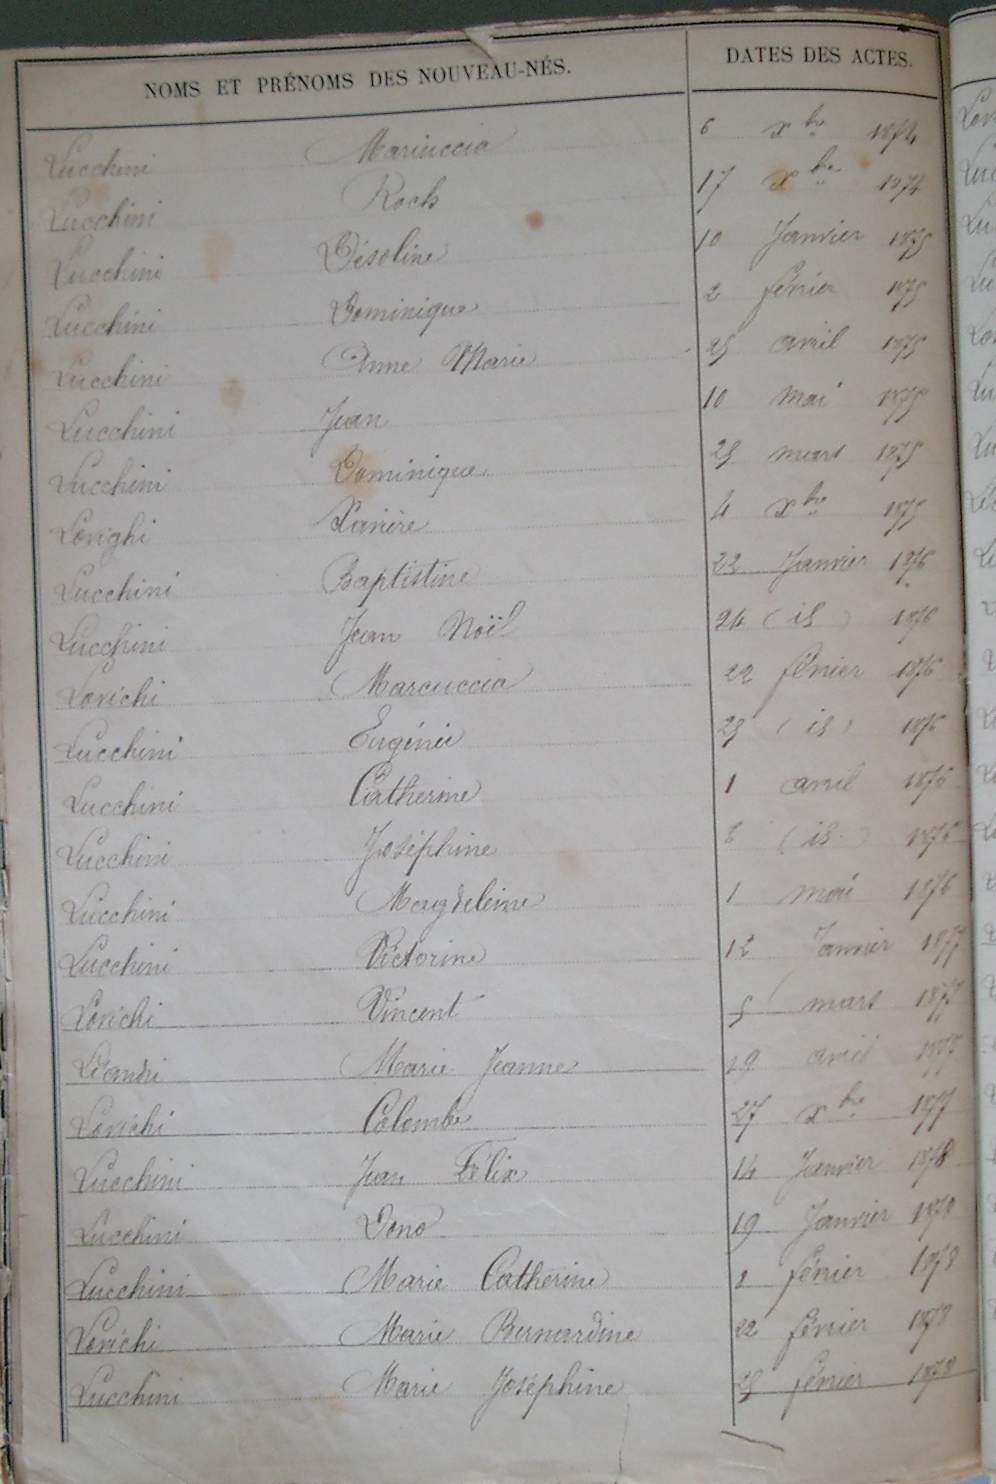 NOMS ET PRÉNOMS DES NOUVEAU-NÉS. DATES DES ACTES.
Lucchini Mariuccia 6 xbre 1874
Lucchini Roch 17 xbre 1874
Lucchini Déseline 10 Janvier 1875
Lucchini Dominique 2 févier 1875
Lucchini Anne Marie 25 avril 1875
Lucchini Jean 10 Mai 1875
Lucchini Dominique 25 mars 1875
Lorighi Xavière 4 xbre 1875
Lucchini Baptistine 22 Janvier 1876
Lucchini Jean Noël 24 (id) 1876
Lovichi Marcuccia 22 févier 1876
Lucchini Eugénie 25 (id) 1876
Lucchini Catherine 1 avril 1876
Lucchini Joséphine (id) 1876
Lucchini Magdeleine 1 mai 1876
Lucchini Victorine 12 Janvier 1877
Lovichi Vincent 5 mars 1877
Léandri Marie Jeanne 19 avril 1877
Lovichi Colombe 27 xbre 1877
Lucchini Jean Félix 14 Janvier 1878
Lucchini Dono 19 Janvier 1878
Lucchini Marie Catherine févier 1878
Lovichi Marie Bernardine 22 févier 1878
Lucchini Marie Joséphine 25 févier 1878